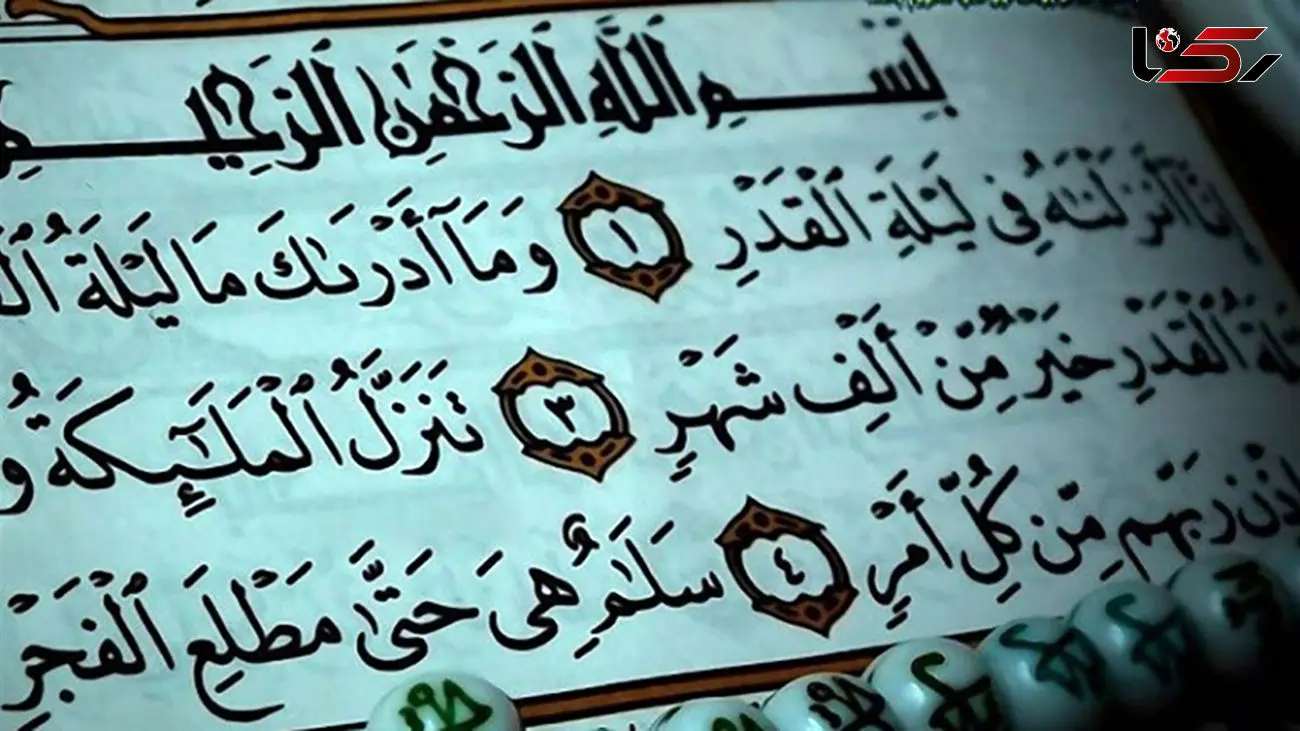 رکنا
بِسْمِ ٱللَّهِ ٱلرَّحْمَٰنِ ٱلرَّحِيمِ
إِنَّآ أَنزَلْنَٰهُ فِى لَيْلَةِ ٱلْقَدْرِ ١ وَمَآ أَدْرَىٰكَ مَا لَيْلَةُ
ٱلْقَدْرِ خَيْرٌ مِّنْ أَلْفِ شَهْرٍ ٣ تَنَزَّلُ ٱلْمَلَٰٓئِكَةُ وَ
رَبِّهِم مِّن كُلِّ أَمْرٍ ٤ سَلَٰمٌ هِىَ حَتَّىٰ مَطْلَعِ ٱلْفَجْرِ